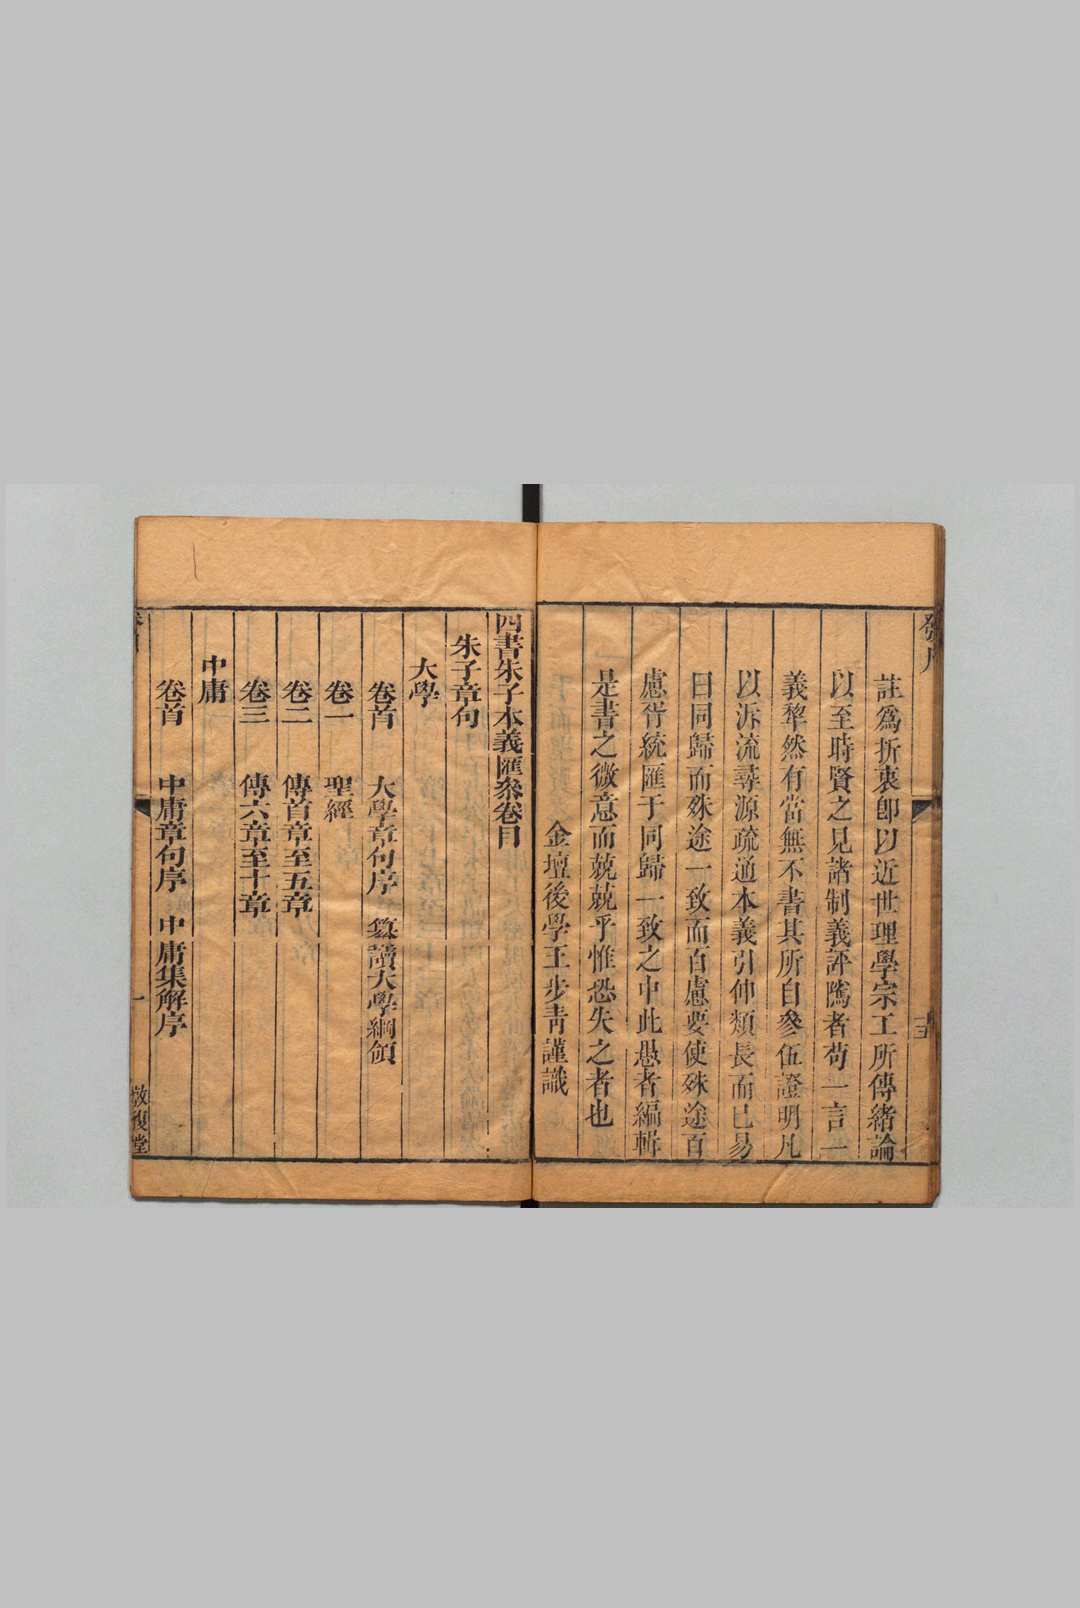 註爲折衷卽以近世理學宗工所傳緒論
以至時賢之見諸制義評隲者苟一言一
義犂然有當無不書其所自參伍證明凡
以泝流尋源疏通本義引伸類長而已易
曰同歸而殊途一致而百慮要使殊途百
慮胥統匯于同歸一致之中此愚者編輯
是書之微意而兢兢乎惟恐失之者也
金壇後學王步靑謹識
四書朱子本義匯叅卷目
朱子章句
大學
卷首 大學章句序 纂讀大學綱領
卷一 聖經
卷二 傳首章至五章
卷三 傳六章至十章
中庸
卷首 中庸章句序 中庸集解序
一
敦復堂